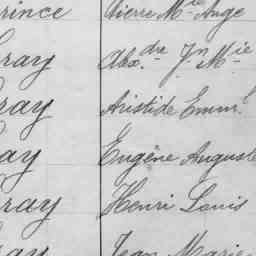 rince Pierre M.ie Ange
ray Alex.dre J.n M.ie
ray Aristide Emm.l
ay Eugène Auguste
ray Henri Louis
ray Jean Marie